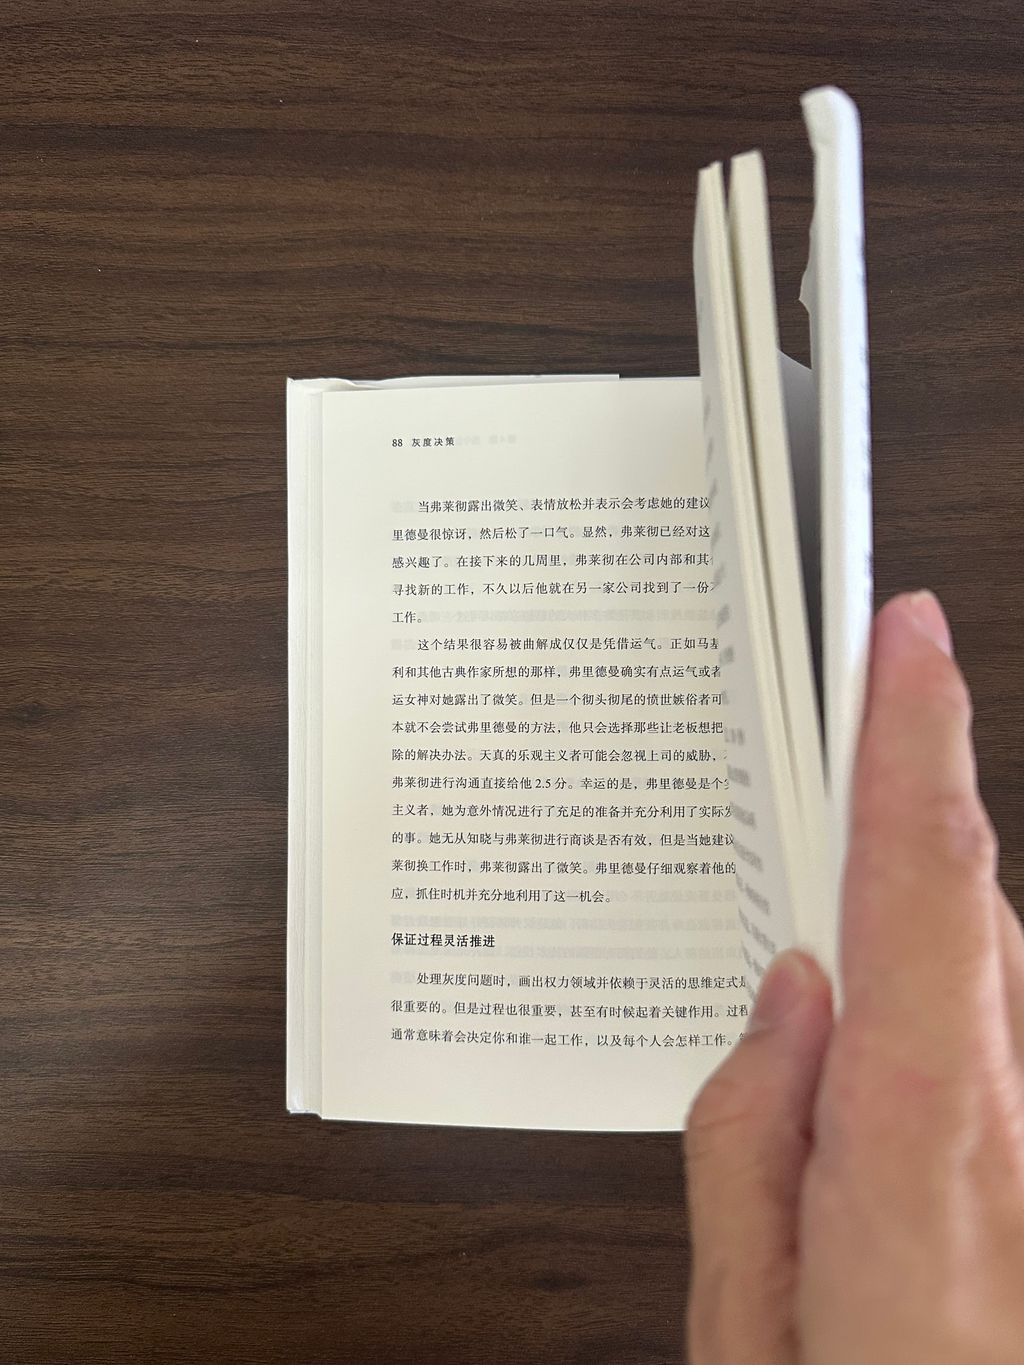 88 灰度决策
当弗莱彻露出微笑、表情放松并表示会考虑她的建议
里德曼很惊讶，然后松了一口气。显然，弗莱彻已经对这
感兴趣了。在接下来的几周里，弗莱彻在公司内部和其
寻找新的工作，不久以后他就在另一家公司找到了一份
工作。
这个结果很容易被曲解成仅仅是凭借运气。正如马基
利和其他古典作家所想的那样，弗里德曼确实有点运气或者
运女神对她露出了微笑。但是一个彻头彻尾的愤世嫉俗者可
本就不会尝试弗里德曼的方法，他只会选择那些让老板想把
除的解决办法。天真的乐观主义者可能会忽视上司的威胁，
弗莱彻进行沟通直接给他 2.5 分。幸运的是，弗里德曼是个
主义者，她为意外情况进行了充足的准备并充分利用了实际发
的事。她无从知晓与弗莱彻进行商谈是否有效，但是当她建议
莱彻换工作时，弗莱彻露出了微笑。弗里德曼仔细观察着他的
应，抓住时机并充分地利用了这一机会。
保证过程灵活推进
处理灰度问题时，画出权力领域并依赖于灵活的思维定式是
很重要的。但是过程也很重要，甚至有时候起着关键作用。过程
通常意味着会决定你和谁一起工作，以及每个人会怎样工作。